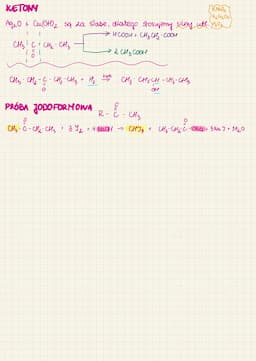 KETONY
Ag₂O i Cu(OH)₂ są za słabe, dlatego stosujemy silny utl.
KMnO₄
K₂Cr₂O₇
HCOOH + CH₃CH₂COOH
O
CH₃ C CH₂ CH₃
2 CH₃COOH
CH₃-CH₂-C-CH₂-CH₃ + H₂ → CH₃-CH₂-CH-CH₂-CH₃
O OH
PRÓBA JODOFORMOWA
O
R-C-CH₃
O O
CH₃-C-CH₂-CH₃ + 3 I₂ + 4 NaOH → CHI₃ + CH₃-CH₂-C-ONa + 3 NaI + 3H₂O